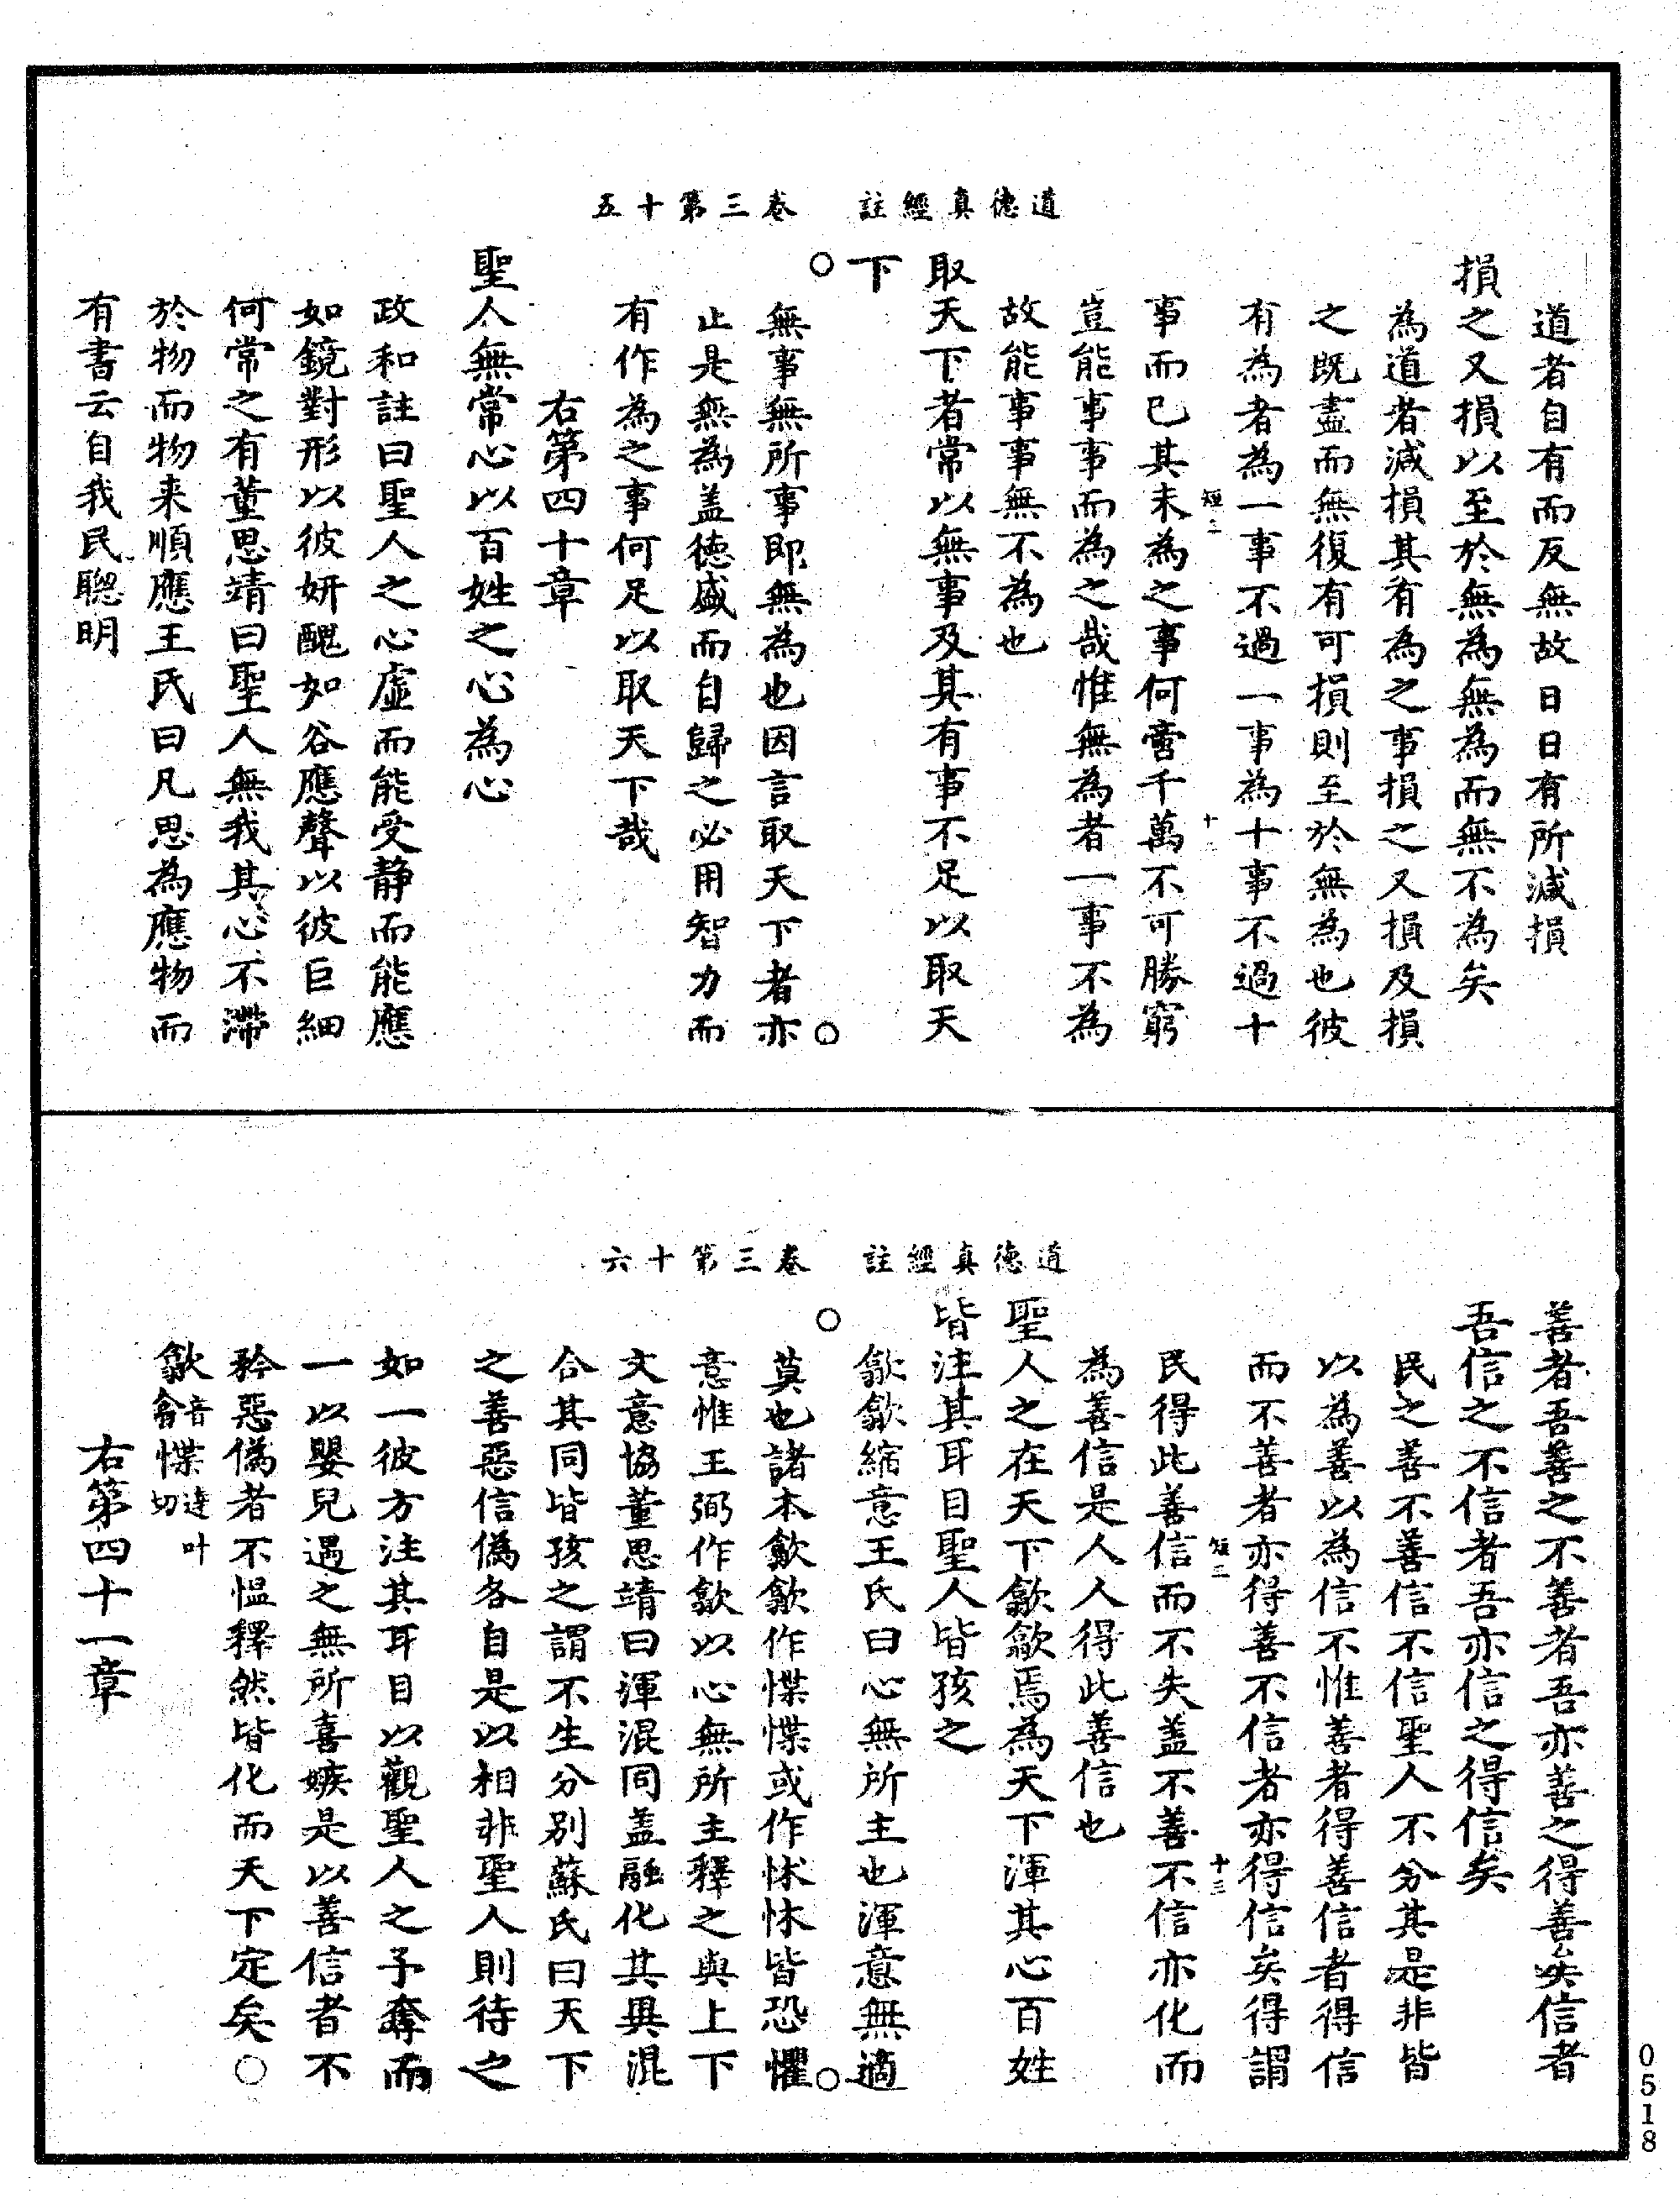 道德真經註　卷三第十五
道者自有而反無故日日有所減損
損之又損以至於無為無為而無不為矣
為道者減損其有為之事損之又損及損
之既盡而無復有可損則至於無為也彼
有為者為一事不過一事為十事不過十
短二　十二
事而已其未為之事何啻千萬不可勝窮
豈能事事而為之哉惟無為者一事不為
故能事事無不為也
取天下者常以無事及其有事不足以取天
下
○　○
無事無所事即無為也因言取天下者亦
止是無為盖德盛而自歸之必用智力而
有作為之事何足以取天下哉
右第四十章
聖人無常心以百姓之心為心
政和註曰聖人之心虛而能受静而能應
如鏡對形以彼妍醜如谷應聲以彼巨細
何常之有董思靖曰聖人無我其心不滯
於物而物来順應王氏曰凡思為應物而
有書云自我民聰明
道德真經註　卷三第十六
善者吾善之不善者吾亦善之得善矣信者
吾信之不信者吾亦信之得信矣
民之善不善信不信聖人不分其是非皆
以為善以為信不惟善者得善信者得信
而不善者亦得善不信者亦得信矣得謂
短二　十三
民得此善信而不失盖不善不信亦化而
為善信是人人得此善信也
聖人之在天下歙歙焉為天下渾其心百姓
皆注其耳目聖人皆孩之
歙歙縮意王氏曰心無所主也渾意無適
○　○
莫也諸本歙歙作惵惵或作怵怵皆恐懼
意惟王弼作歙以心無所主釋之與上下
文意協董思靖曰渾混同盖融化其異混
合其同皆孩之謂不生分別蘇氏曰天下
之善惡信偽各自是以相非聖人則待之
如一彼方注其耳目以觀聖人之予奪而
一以嬰兒遇之無所喜嫉是以善信者不
矜惡偽者不慍釋然皆化而天下定矣○
歙音翕惵達叶切
右第四十一章
0518